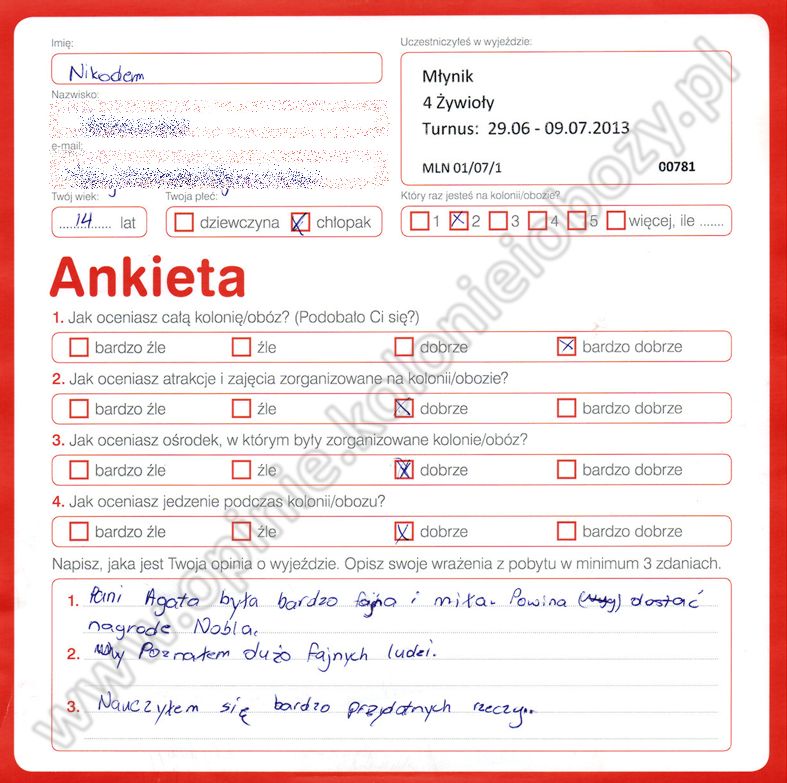 Imię:
Nikodem
Nazwisko:
e-mail:
Twój wiek:
14 lat
Twoja płeć:
dziewczyna chłopak
Uczestniczyłeś w wyjeździe:
Młynik
4 Żywioły
Turnus: 29.06 - 09.07.2013
MLN 01/07/1 00781
Który raz jesteś na kolonii/obozie?
1 2 3 4 5 więcej, ile .......
Ankieta
1. Jak oceniasz całą kolonię/obóz? (Podobało Ci się?)
bardzo źle źle dobrze bardzo dobrze
2. Jak oceniasz atrakcje i zajęcia zorganizowane na kolonii/obozie?
bardzo źle źle dobrze bardzo dobrze
3. Jak oceniasz ośrodek, w którym były zorganizowane kolonie/obóz?
bardzo źle źle dobrze bardzo dobrze
4. Jak oceniasz jedzenie podczas kolonii/obozu?
bardzo źle źle dobrze bardzo dobrze
Napisz, jaka jest Twoja opinia o wyjeździe. Opisz swoje wrażenia z pobytu w minimum 3 zdaniach.
1. Pani Agata była bardzo fajna i miła. Powina dostać
nagrode Nobla.
2. Poznałem dużo fajnych ludei.
3. Nauczyłem się bardzo przydatnych rzeczy..
www.opinie.kolonieiobozy.pl